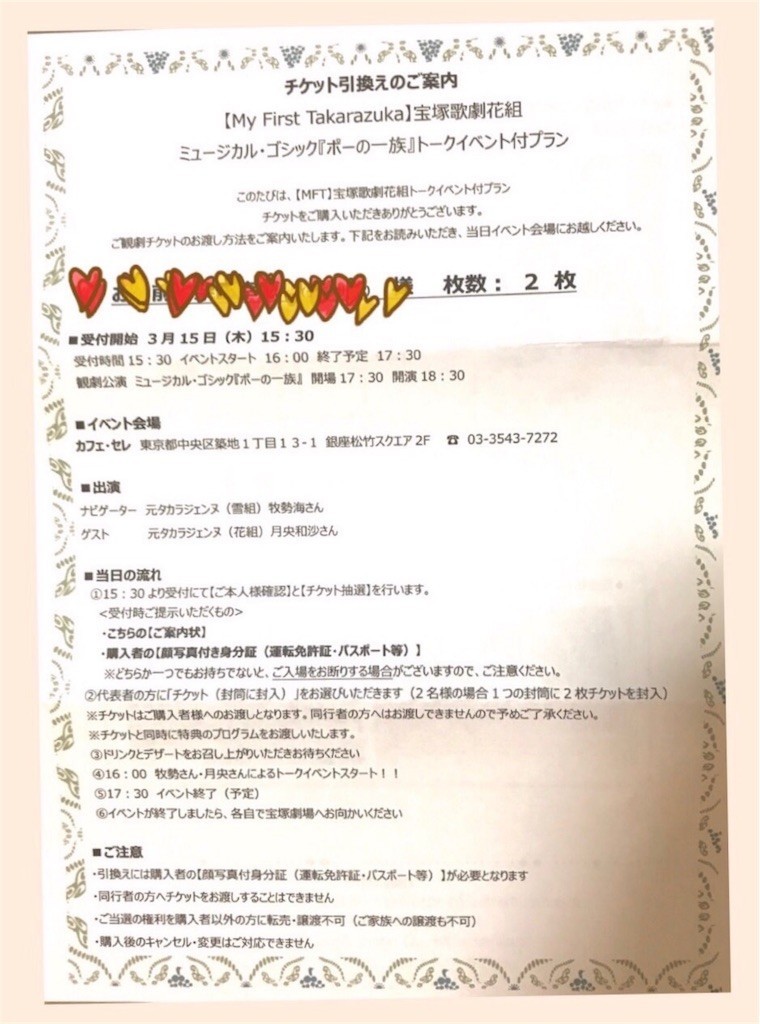 チケット引換えのご案内
【My First Takarazuka】宝塚歌劇花組
ミュージカル・ゴシック『ポーの一族』トークイベント付プラン
このたびは、【MFT】宝塚歌劇花組トークイベント付プラン
チケットをご購入いただきありがとうございます。
ご観劇チケットのお渡し方法をご案内いたします。下記をお読みいただき、当日イベント会場にお越しください。
様 枚数： 2 枚
■受付開始 3月15日（木）15：30
受付時間 15：30 イベントスタート 16：00 終了予定 17：30
観劇公演 ミュージカル・ゴシック『ポーの一族』 開場 17：30 開演 18：30
■イベント会場
カフェ・セレ 東京都中央区築地１丁目１３-１ 銀座松竹スクエア 2F ☎ 03-3543-7272
■出演
ナビゲーター 元タカラジェンヌ（雪組）牧勢海さん
ゲスト 元タカラジェンヌ（花組）月央和沙さん
■当日の流れ
①15：30 より受付にて【ご本人様確認】と【チケット抽選】を行います。
<受付時ご提示いただくもの>
・こちらの【ご案内状】
・購入者の【顔写真付き身分証（運転免許証・パスポート等）】
※どちらか一つでもお持ちでないと、ご入場をお断りする場合がございますので、ご注意ください。
②代表者の方に「チケット（封筒に封入）」をお選びいただきます（２名様の場合１つの封筒に２枚チケットを封入）
※チケットはご購入者様へのお渡しとなります。同行者の方へはお渡しできませんので予めご了承ください。
※チケットと同時に特典のプログラムをお渡しいたします。
③ドリンクとデザートをお召し上がりいただきお待ちください
④16：00 牧勢さん・月央さんによるトークイベントスタート！！
⑤17：30 イベント終了（予定）
⑥イベントが終了しましたら、各自で宝塚劇場へお向かいください
■ご注意
・引換えには購入者の【顔写真付身分証（運転免許証・パスポート等）】が必要となります
・同行者の方へチケットをお渡しすることはできません
・ご当選の権利を購入者以外の方に転売・譲渡不可（ご家族への譲渡も不可）
・購入後のキャンセル・変更はご対応できません